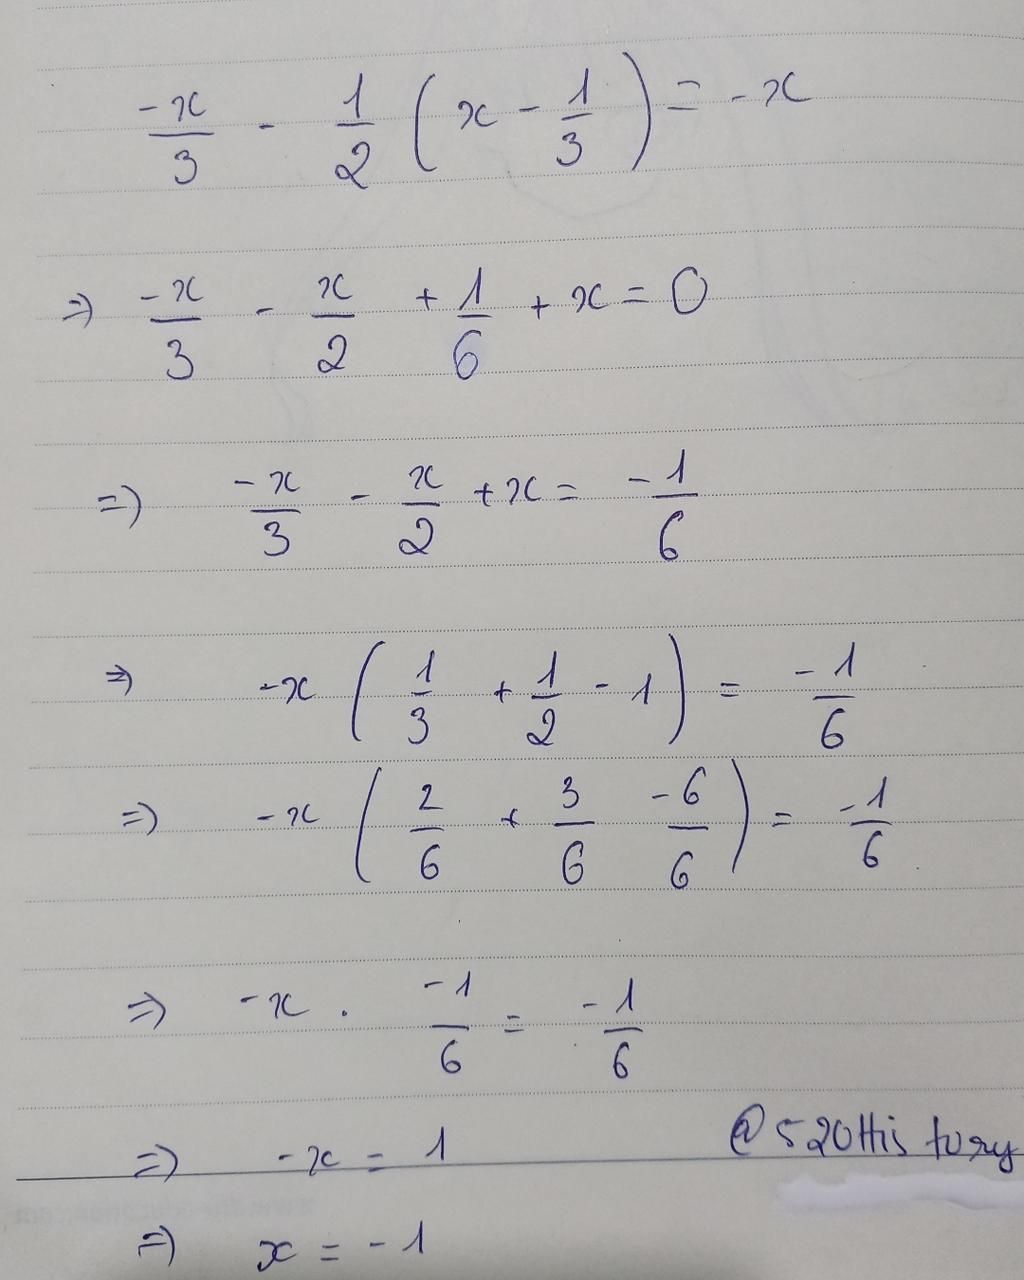 -x/3 - 1/2 (x - 1/3) = -x
=> -x/3 - x/2 + 1/6 + x = 0
=> -x/3 - x/2 + x = -1/6
=> -x (1/3 + 1/2 - 1) = -1/6
=> -x (2/6 + 3/6 -6/6) = -1/6
=> -x . -1/6 = -1/6
=> -x = 1
@520History
=> x = -1